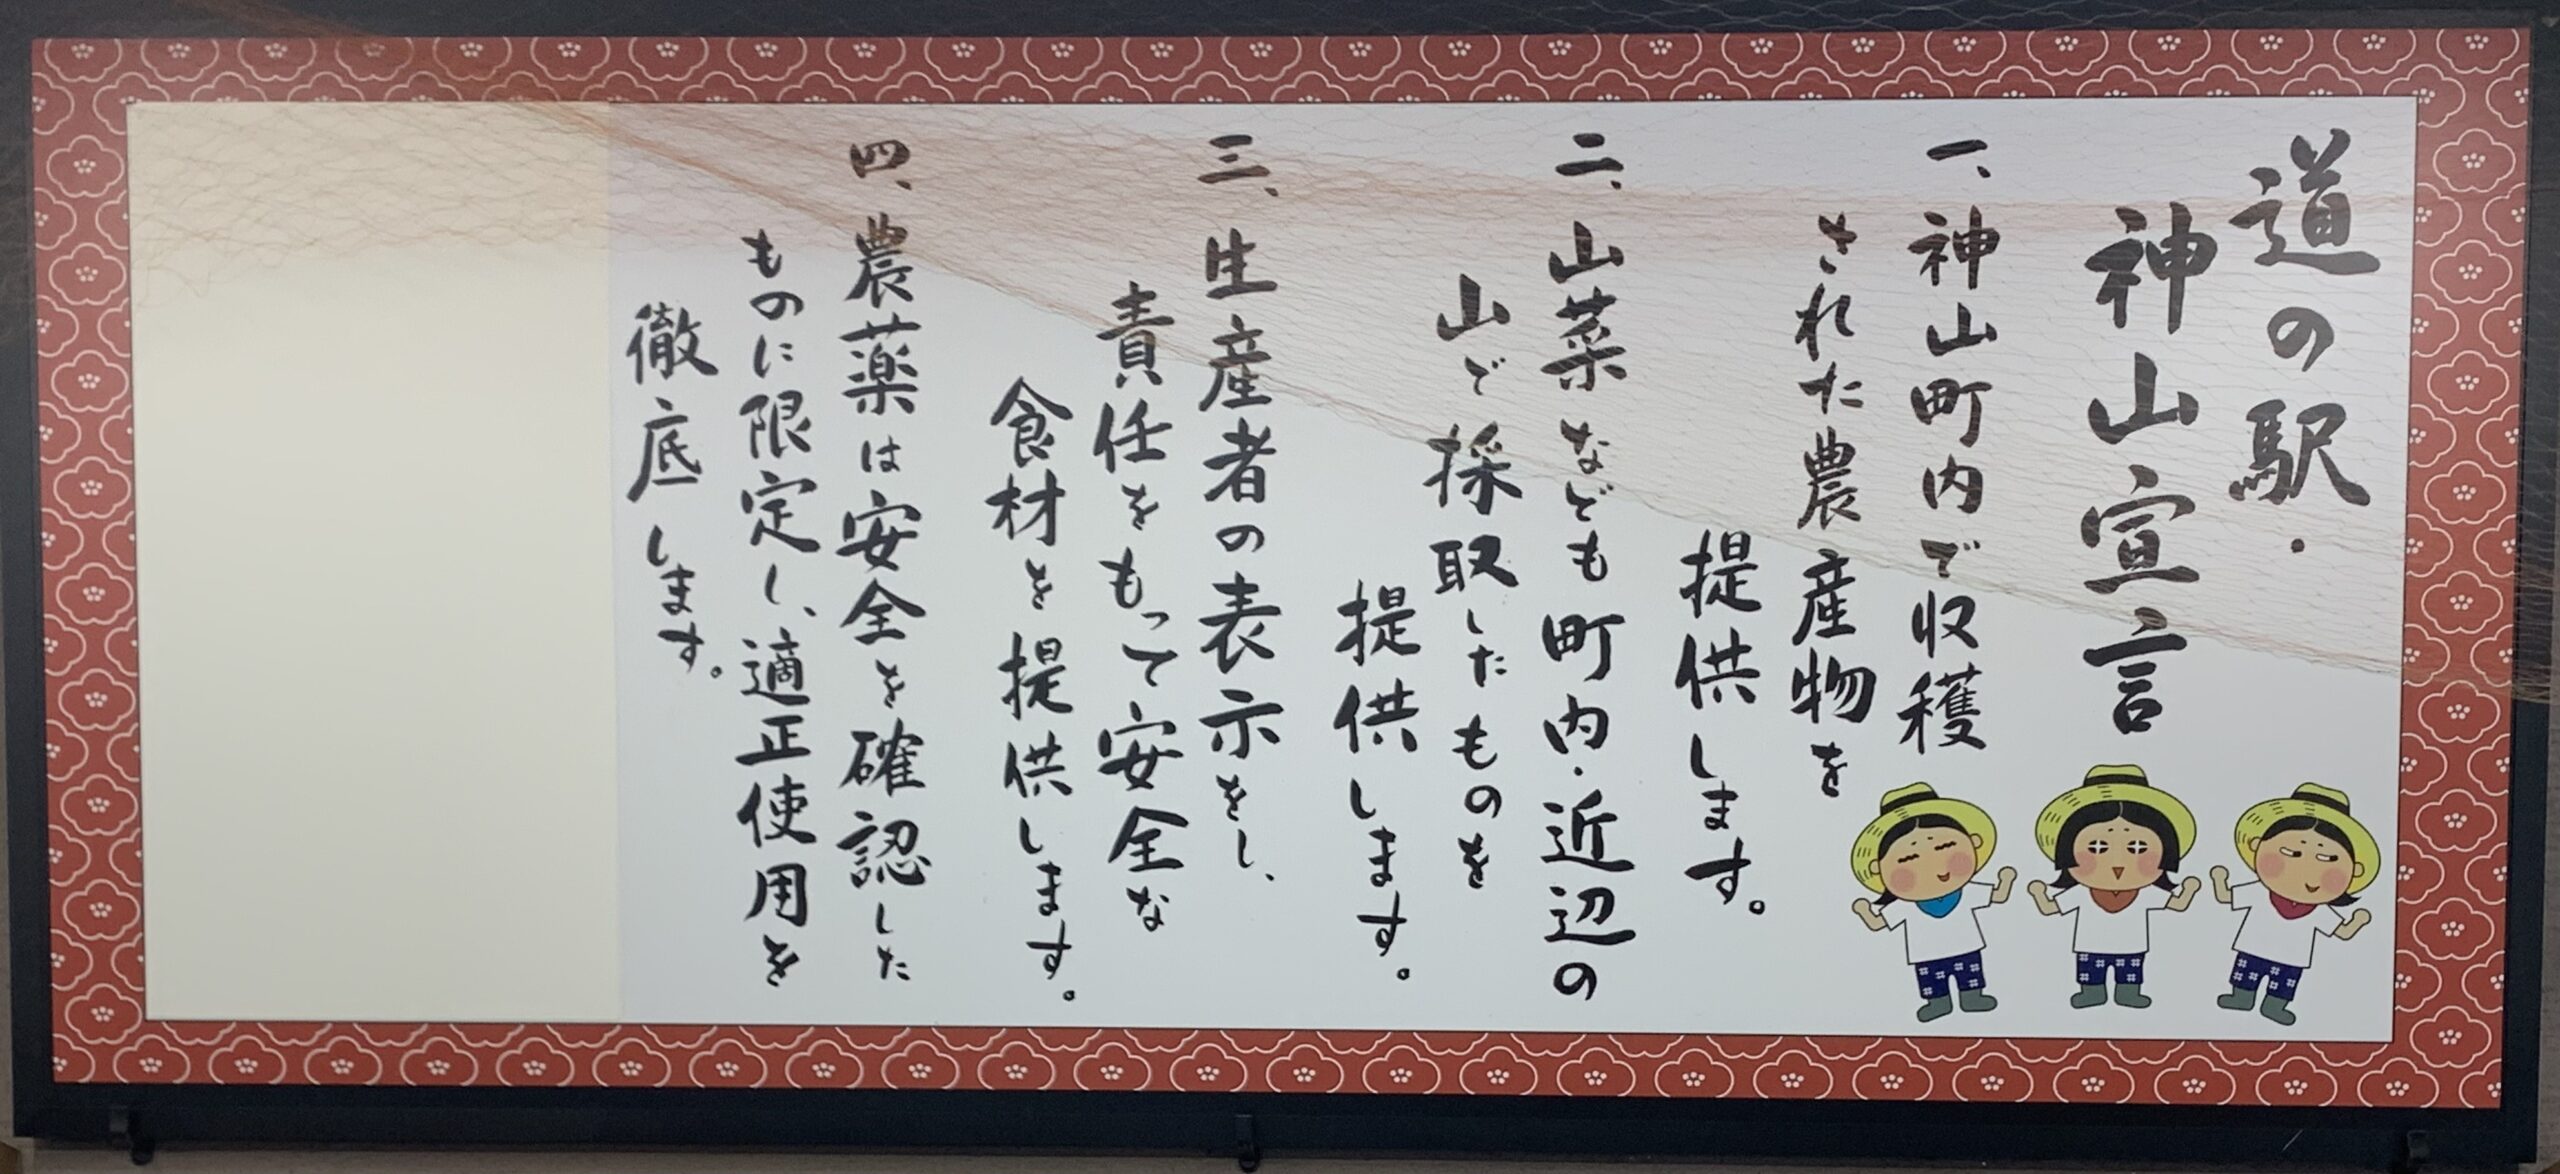 道の駅・
神山宣言
一、神山町内で収穫
された農産物を
提供します。
二、山菜なども町内・近辺の
山で採取したものを
提供します。
三、生産者の表示をし、
責任をもって安全な
食材を提供します。
四、農薬は安全を確認した
ものに限定し、適正使用を
徹底します。